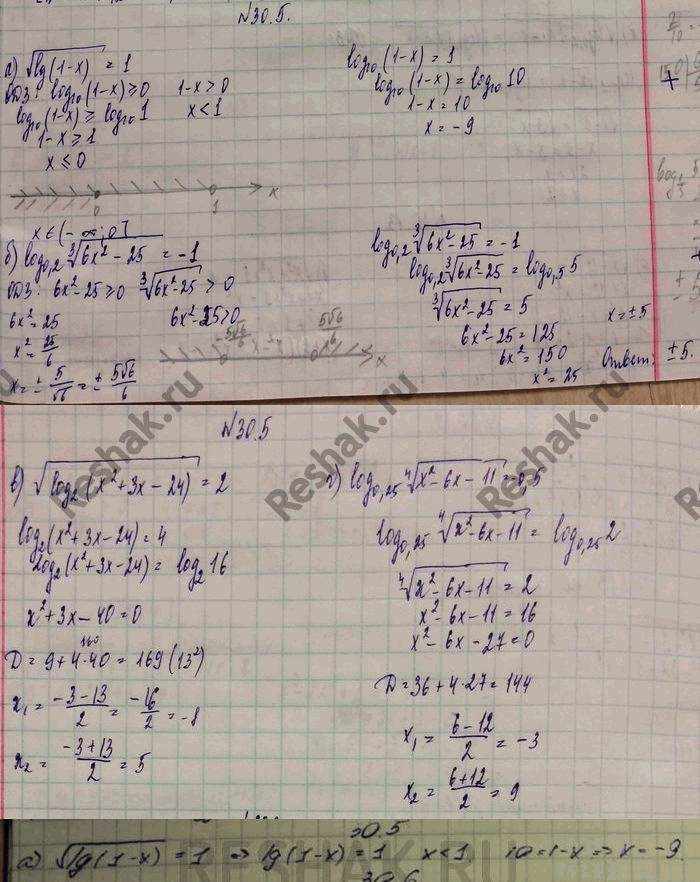 №30.5.
а) √lg(1-x) = 1
ОДЗ: log₁₀(1-x) ≥ 0     1-x > 0
log₁₀(1-x) ≥ log₁₀1     x < 1
1-x ≥ 1
x ≤ 0
0 1 x
x ∈ (-∞; 0]
log₁₀(1-x) = 1
log₁₀(1-x) = log₁₀10
1-x = 10
x = -9
б) log₀,₂ ∛(6x²-25) = -1
ОДЗ: 6x²-25 ≥ 0   ∛(6x²-25) > 0
6x² = 25     6x²-25 > 0
x² = 25/6
x = ± 5/√6 = ± 5√6/6
-5√6/6   5√6/6   x
log₀,₂ ∛(6x²-25) = -1
log₀,₂ ∛(6x²-25) = log₀,₅ 5
∛(6x²-25) = 5
6x²-25 = 125
6x² = 150
x² = 25
x = ±5
Ответ: ±5.
№30.5
в) √log₂(x²+3x-24) = 2
log₂(x²+3x-24) = 4
log₂(x²+3x-24) = log₂16
x²+3x-40 = 0
160
D = 9+4·40 = 169 (13²)
x₁ = (-3-13)/2 = -16/2 = -8
x₂ = (-3+13)/2 = 5
г) log₀,₂₅ ∜(x²-6x-11) = -0,5
log₀,₂₅ ∜(x²-6x-11) = log₀,₂₅2
∜(x²-6x-11) = 2
x²-6x-11 = 16
x²-6x-27 = 0
D = 36+4·27 = 144
x₁ = (6-12)/2 = -3
x₂ = (6+12)/2 = 9
30.5
а) √lg(1-x) = 1 ⇒ lg(1-x) = 1   x < 1   10 = 1-x ⇒ x = -9.
30.6
Reshak.ru
Reshak.ru
Reshak.ru
Reshak.ru
RESHAK.RU